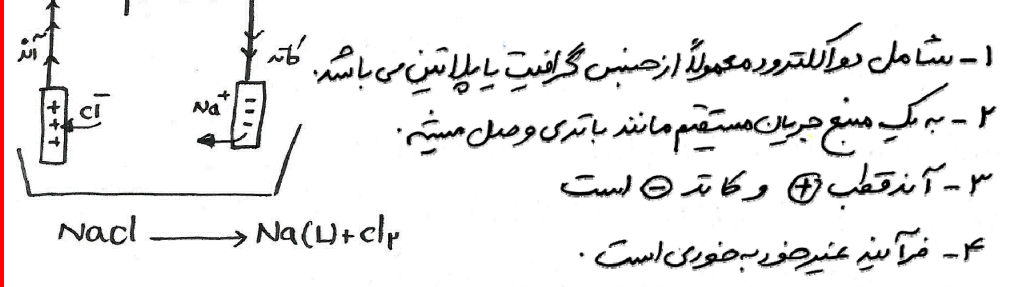 ۱- شامل دو الکترود معمولاً از جنس گرافیت یا پلاتین می باشد.
۲- به یک منبع جریان مستقیم مانند باتری وصل میشه.
۳- آند قطب ⊕ و کاتد ⊖ است
۴- فرآیند غیر خود به خودی است.
آند
کاتد
+
+
+
Cl⁻
Na⁺
−
−
−
NaCl ⟶ Na(L)+Cl۲